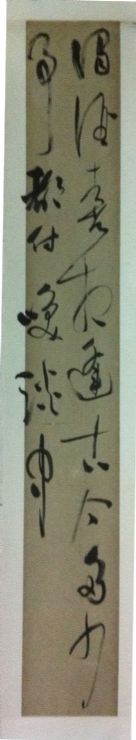 濁酒喜相逢古今多少
事都付笑談中